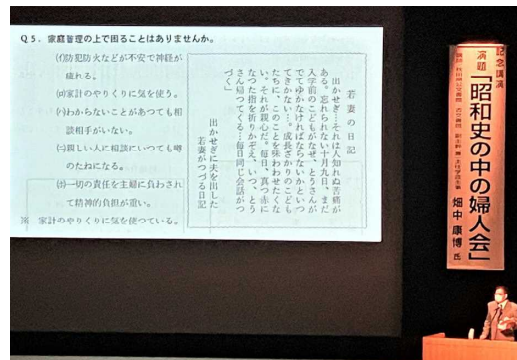 Q5．家庭管理の上で困ることはありませんか。
(イ)防犯防火などが不安で神経が
疲れる。
(ロ)家計のやりくりに気を使う。
(ハ)わからないことがあっても相
談相手がいない。
(ニ)親しい人に相談にいっても噂
のたねになる。
(ホ)一切の責任を主婦に負わされ
て精神的負担が重い。
家計のやりくりに気を使っている。
若妻の日記
出かせぎ…それは人知れぬ苦痛が
ある。忘れられない十月九日、まだ
入学前のこどもがなぜ、とうさんが
でてゆかなければならないかといっ
てきかない…。成長ざかりのこども
たちに、このことを味わわせたくな
い、それが親心だ。毎日、真つ赤に
なつた指を折りかぞえ、いつ、とう
さん帰つてくる…毎日同じ会話がつ
づく」
出かせぎに夫を出した
若妻がつづる日記
記念講演
演題
「昭和史の中の婦人会」
畑中 康博 氏